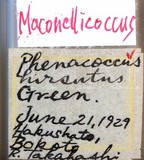 Maconellicoccus
Phenacoccus
hirsutus
Green.
June 21, 1929
Hakushato,
Bokoto
R. Takahashi